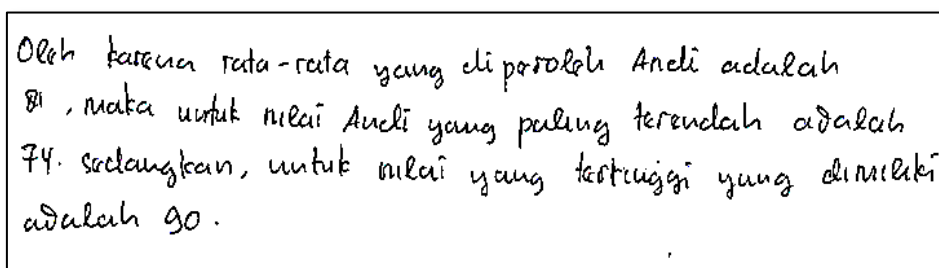 Oleh karena rata-rata yang diperoleh Andi adalah
81, maka untuk nilai Andi yang paling terendah adalah
74. sedangkan, untuk nilai yang tertinggi yang dimiliki
adalah 90.